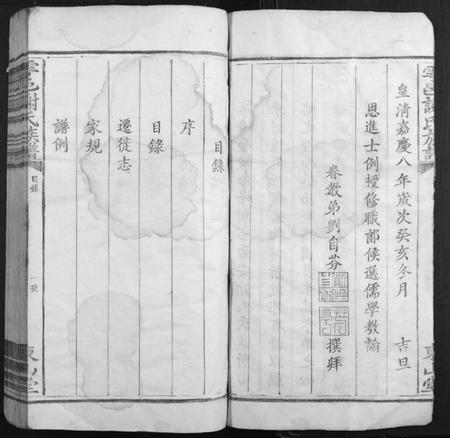 皇清嘉慶八年歲次癸亥冬月　吉旦
恩進士例授修職郎候選儒學教諭
眷教弟劉自芬　撰拜
目錄
序
目錄
遷徙志
家規
譜例
雲邑謝氏族譜　目錄　一號　東山堂